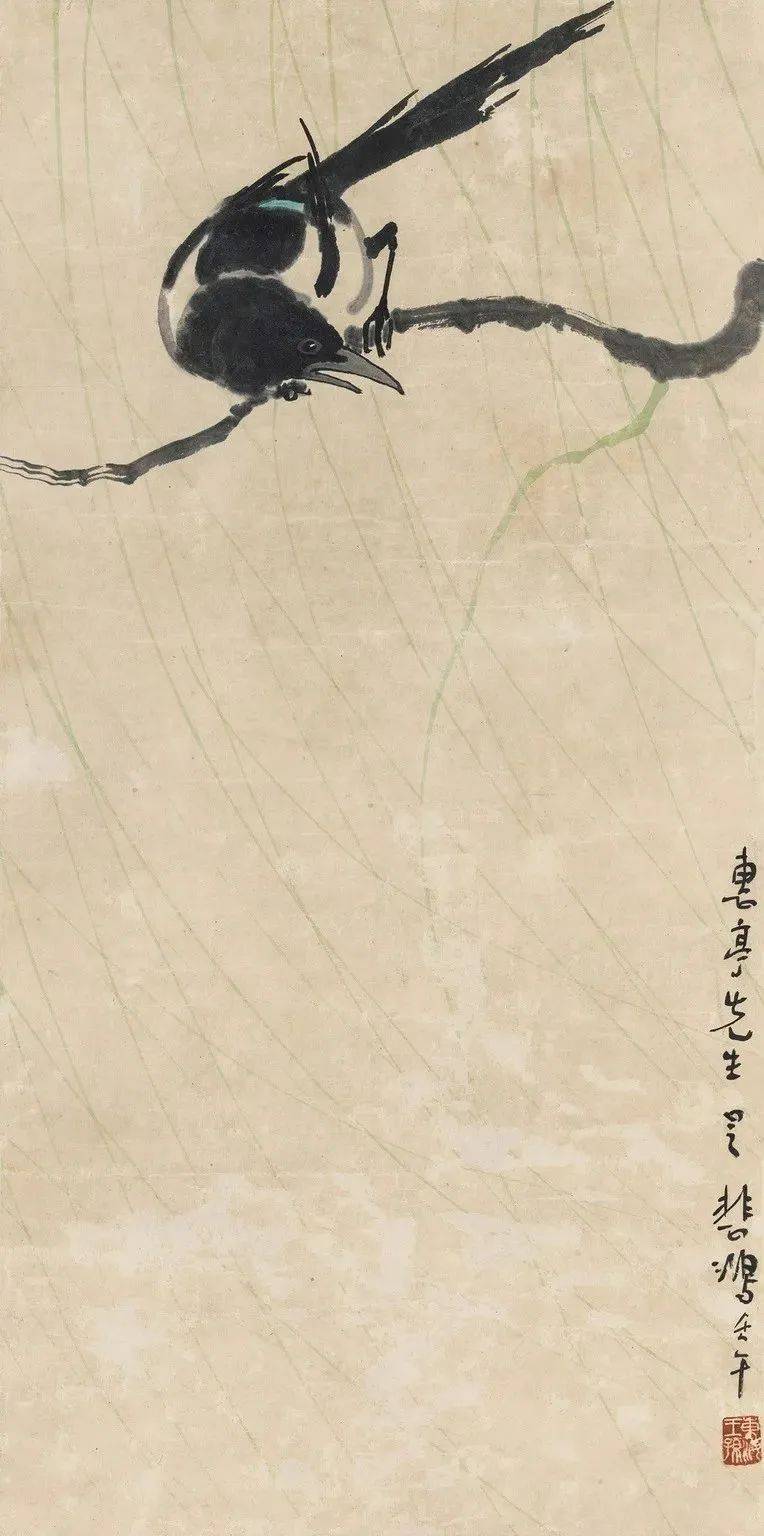 惠亭先生 悲鴻 壬午
東海王孫